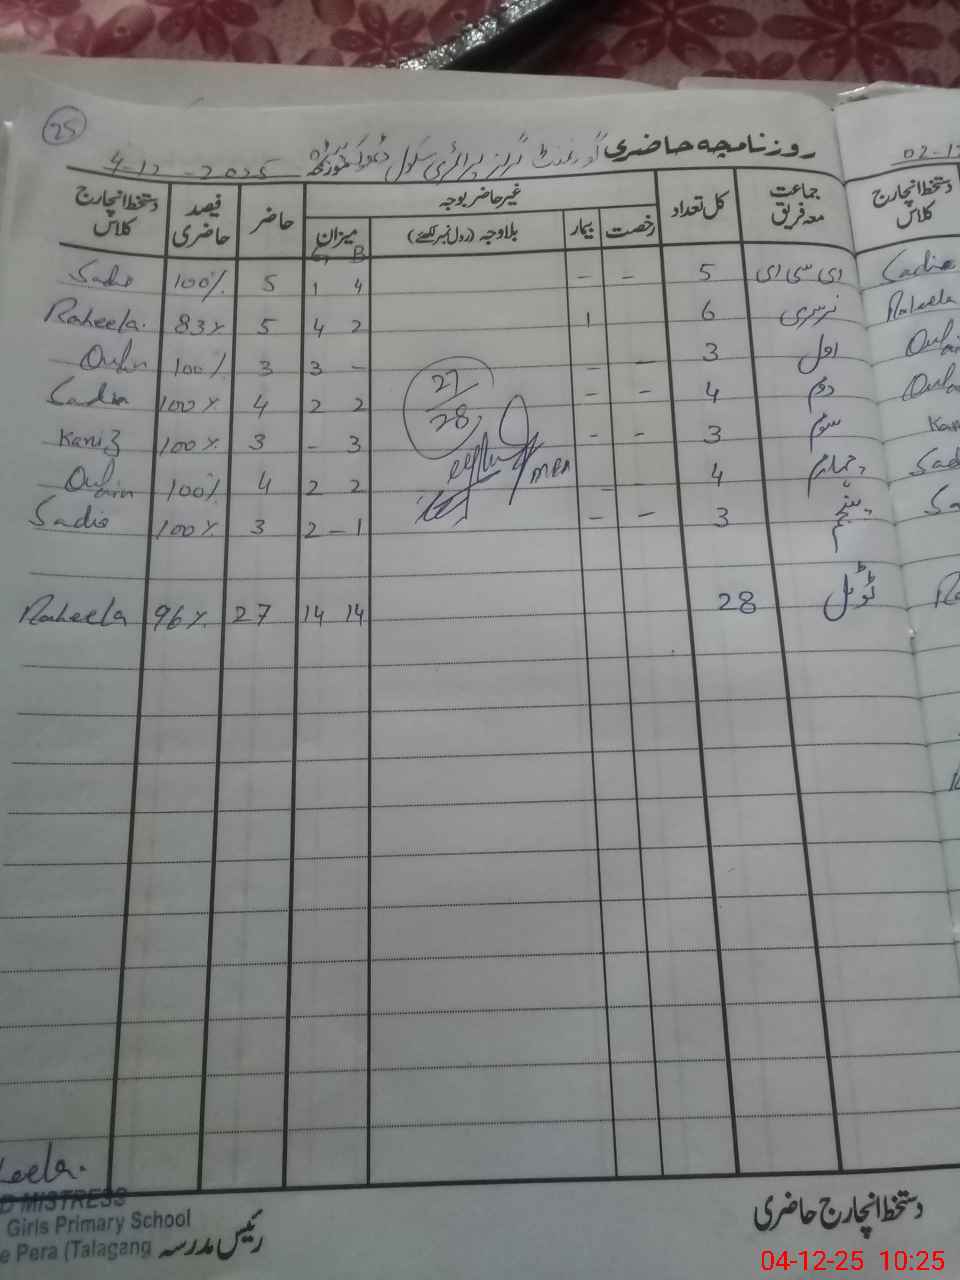 25
روزنامچہ حاضری گورنمنٹ گرلز پرائمری سکول ڈھوک 4-12-2025
جماعت معہ فریق کل تعداد غیر حاضر بوجہ حاضر فیصد حاضری دستخط انچارج کلاس
رخصت بیمار بلاوجہ (رول نمبر لکھئے) میزان
G B
ای سی ای 5 - - 4 1 5 100% Sadia
نرسری 6 1 2 4 5 83% Raheela.
اول 3 - - - 3 3 100%
دوم 4 - - 2 2 4 100% Sadia
سوم 3 - - 3 - 3 100% Kaniz
چہارم 4 - 2 2 4 100%
پنجم 3 - - 1 - 2 3 100% Sadia
27/28
MEA
ٹوٹل 28 14 14 27 96% Raheela
دستخط انچارج کلاس
02-12
Sadia
Raheela
دستخط انچارج حاضری
رئیس مدرسہ
eela.
D MISTRESS
Girls Primary School
e Pera (Talagang
04-12-25 10:25